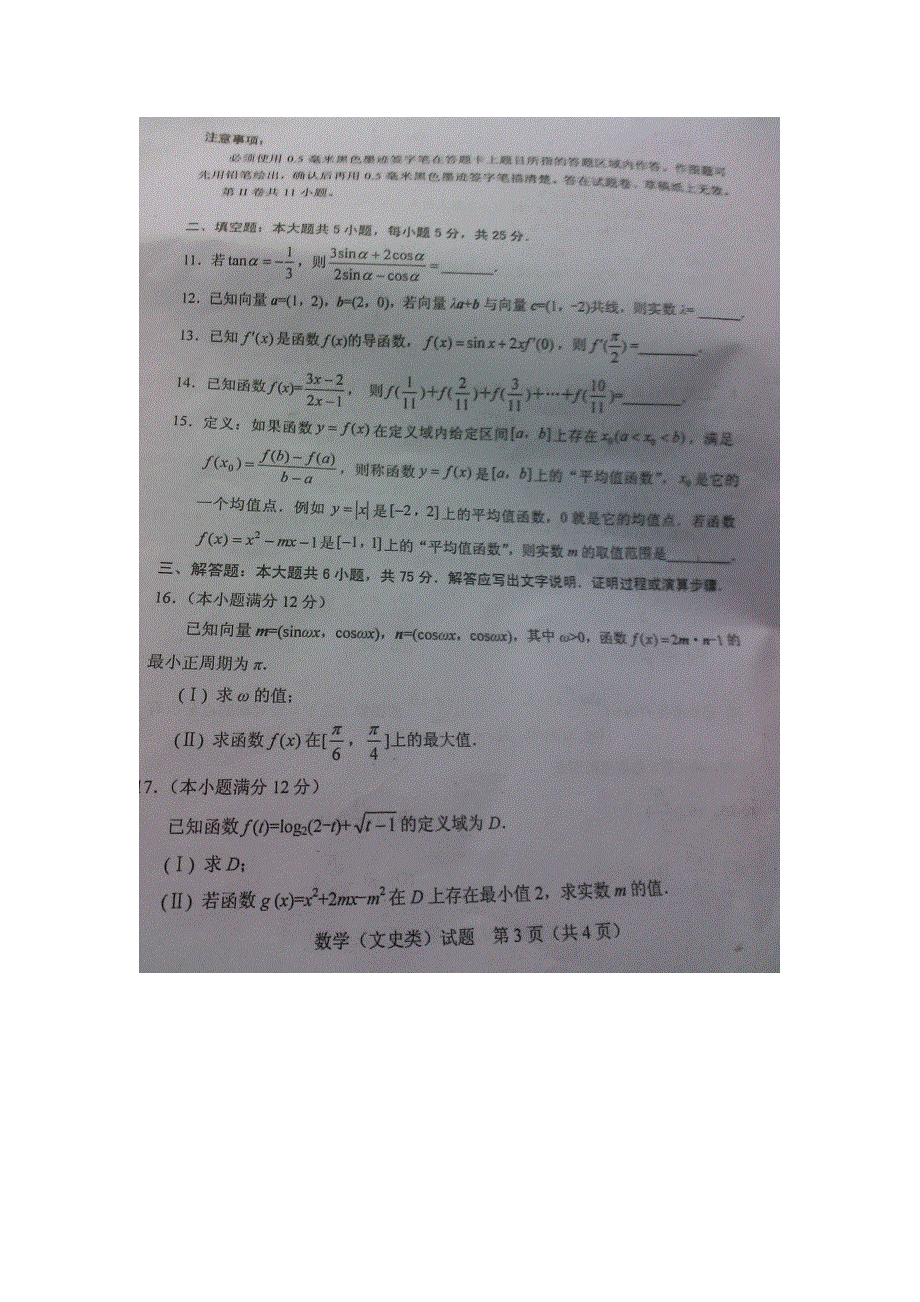 注意事项：
必须使用 0.5 毫米黑色墨迹签字笔在答题卡上题目所指的答题区域内作答。作图题可
先用铅笔绘出，确认后再用 0.5 毫米黑色墨迹签字笔描清楚。答在试题卷、草稿纸上无效。
第 II 卷共 11 小题。
二、填空题：本大题共 5 小题，每小题 5 分，共 25 分．
11．若 tanα = -1/3，则 (3sinα + 2cosα)/(2sinα - cosα) = ______．
12．已知向量 a=(1，2)，b=(2，0)，若向量 λa+b 与向量 c=(1，-2)共线，则实数 λ= ______．
13．已知 f′(x) 是函数 f(x)的导函数，f(x) = sin x + 2xf′(0)，则 f′(π/2) = ______．
14．已知函数 f(x)= (3x-2)/(2x-1)，则 f(1/11)+f(2/11)+f(3/11)+…+f(10/11)=______．
15．定义：如果函数 y = f(x) 在定义域内给定区间 [a，b] 上存在 x₀(a < x₀ < b)，满足
f(x₀) = (f(b) - f(a))/(b - a)，则称函数 y = f(x) 是 [a，b] 上的“平均值函数”，x₀ 是它的
一个均值点．例如 y = |x| 是 [-2，2] 上的平均值函数，0 就是它的均值点．若函数
f(x) = x² - mx - 1 是 [-1，1] 上的“平均值函数”，则实数 m 的取值范围是______．
三、解答题：本大题共 6 小题，共 75 分．解答应写出文字说明．证明过程或演算步骤．
16．（本小题满分 12 分）
已知向量 m=(sinωx，cosωx)，n=(cosωx，cosωx)，其中 ω>0，函数 f(x) = 2m·n-1 的
最小正周期为 π．
(Ⅰ) 求 ω 的值；
(Ⅱ) 求函数 f(x) 在[π/6，π/4]上的最大值．
17．（本小题满分 12 分）
已知函数 f(t)=log₂(2-t)+√(t-1) 的定义域为 D．
(Ⅰ) 求 D；
(Ⅱ) 若函数 g (x)=x²+2mx-m² 在 D 上存在最小值 2，求实数 m 的值．
数学（文史类）试题 第 3 页（共 4 页）